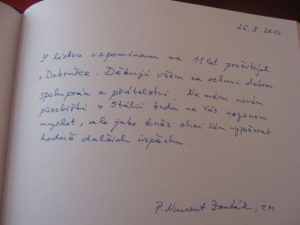 26.8.2014
S láskou vzpomínám na 11 let prožitých
v Dobrušce. Děkuji všem za velmi dobrou
spolupráci a přátelství. Na mém novém
působišti v Itálii budu na Vás nejenom
myslet, ale jako kněz chci Vám vyprošovat
hodně dalších úspěchů.
P. CM